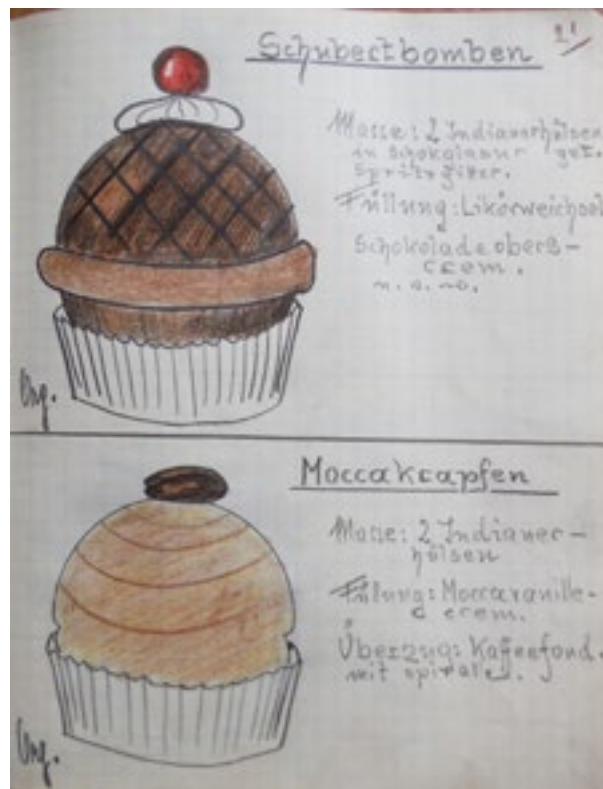 21
Schubertbomben
Masse: 2 Indianerhülsen
in Schokglasur get.
Spritzgitter.
Füllung: Likörweichsel
Schokoladeobers-
crem.
Moccakrapfen
Masse: 2 Indianer-
hülsen
Füllung: Moccavanille-
crem.
Überzug: Kaffeefond.
mit spirale.